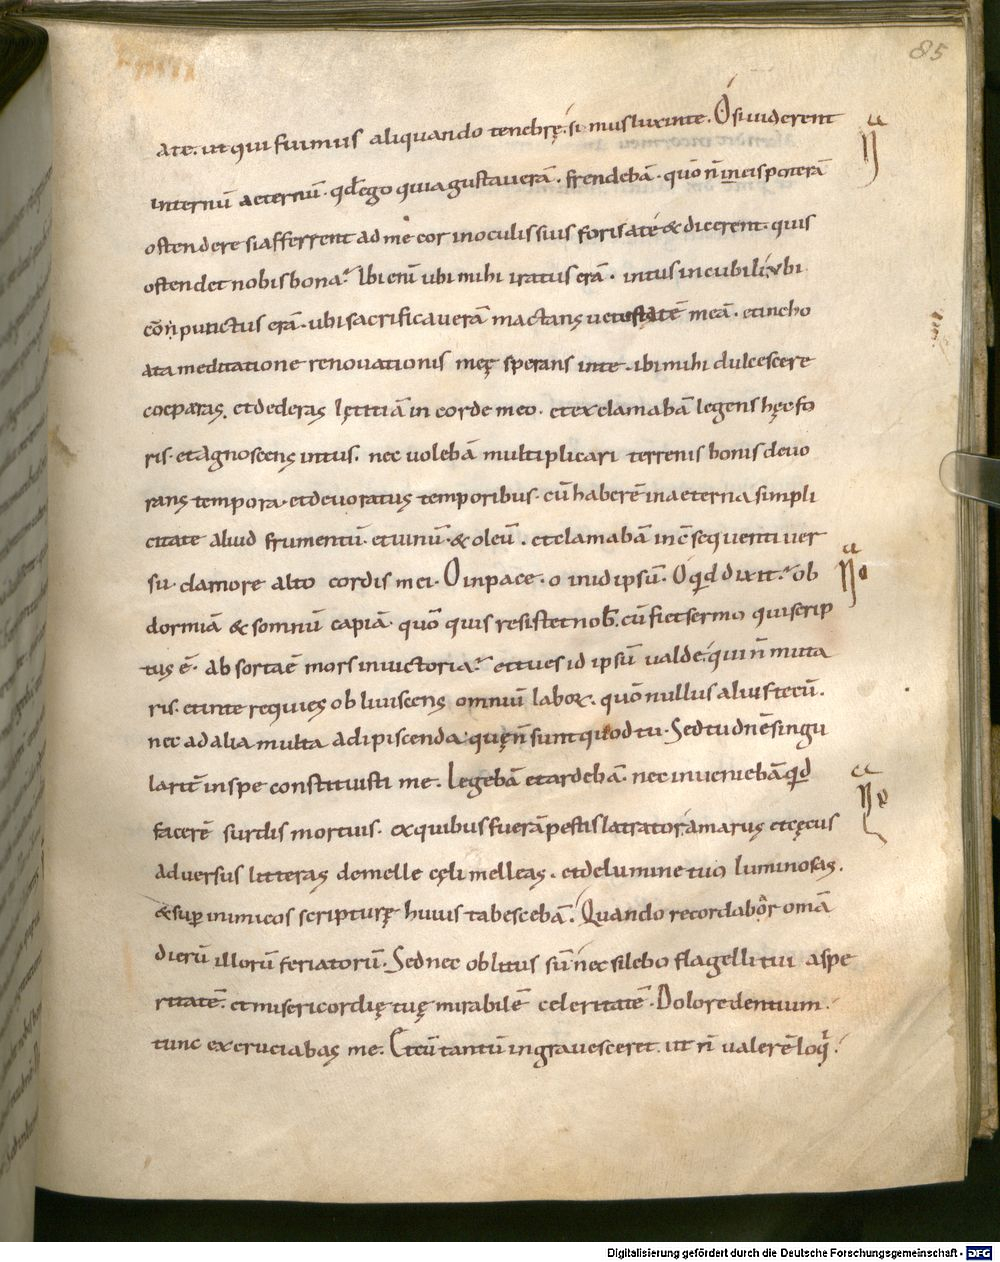 85
ate. ut qui fuimus aliquando tenebrę. simus lux in te. O si uiderent
internū aeternū. qđ ego quia gustauerā. frendebā. quō n̄ in eis poterā
ostendere si afferrent ad me cor in oculis suis foris a te & dicerent. quis
ostendet nobis bona? Ibi enī ubi mihi iratus erā. intus in cubili. ubi
cōnpunctus erā. ubi sacrificauerā mactans uetustatē meā. et incho
ata meditatione renouationis meę sperans in te. ibi mihi dulcescere
coeparas. et dederas lętitiā in corde meo. et exclamabā legens hęc fo
ris. et agnoscens intus. nec uolebā multiplicari terrenis bonis deuo
rans tempora. et deuoratus temporibus. cū haberē in aeterna simpli
citate aliud frumentū. et uinū. & oleū. et clamabā in c̄sequenti uer
su. clamore alto cordis mei. O in pace. o in idipsū. O qd dixit? ob
dormiā & somnū capiā. quō quis resistet nob. cū fiet sermo qui scrip
tus ē. absorta ē mors in uictoria? et tu es idipsū ualde. qui n̄ muta
ris. et in te requies obliuiscens omniū labor. quō nullus alius tecū.
nec ad alia multa adipiscenda. quę n̄ sunt quod tu. Sed tu dnē singu
larit̄ in spe constituisti me. Legebā et ardebā. nec inueniebā qd
facerē surdis mortuis. ex quibus fuerā pestis latrator. amarus et cęcus
aduersus litteras de melle cęli melleas. et de lumine tuo luminosas.
& sup inimicos scripturę huius tabescebā. Quando recordabor omā
dierū illorū feriatorū. Sed nec oblitus sū. nec silebo flagelli tui aspe
ritatē. et misericordię tuę mirabilē celeritatē. Dolore dentium
tunc excruciabas me. Et cū tantū ingrauesceret. ut n̄ ualerē loqi.
Digitalisierung gefördert durch die Deutsche Forschungsgemeinschaft - DFG